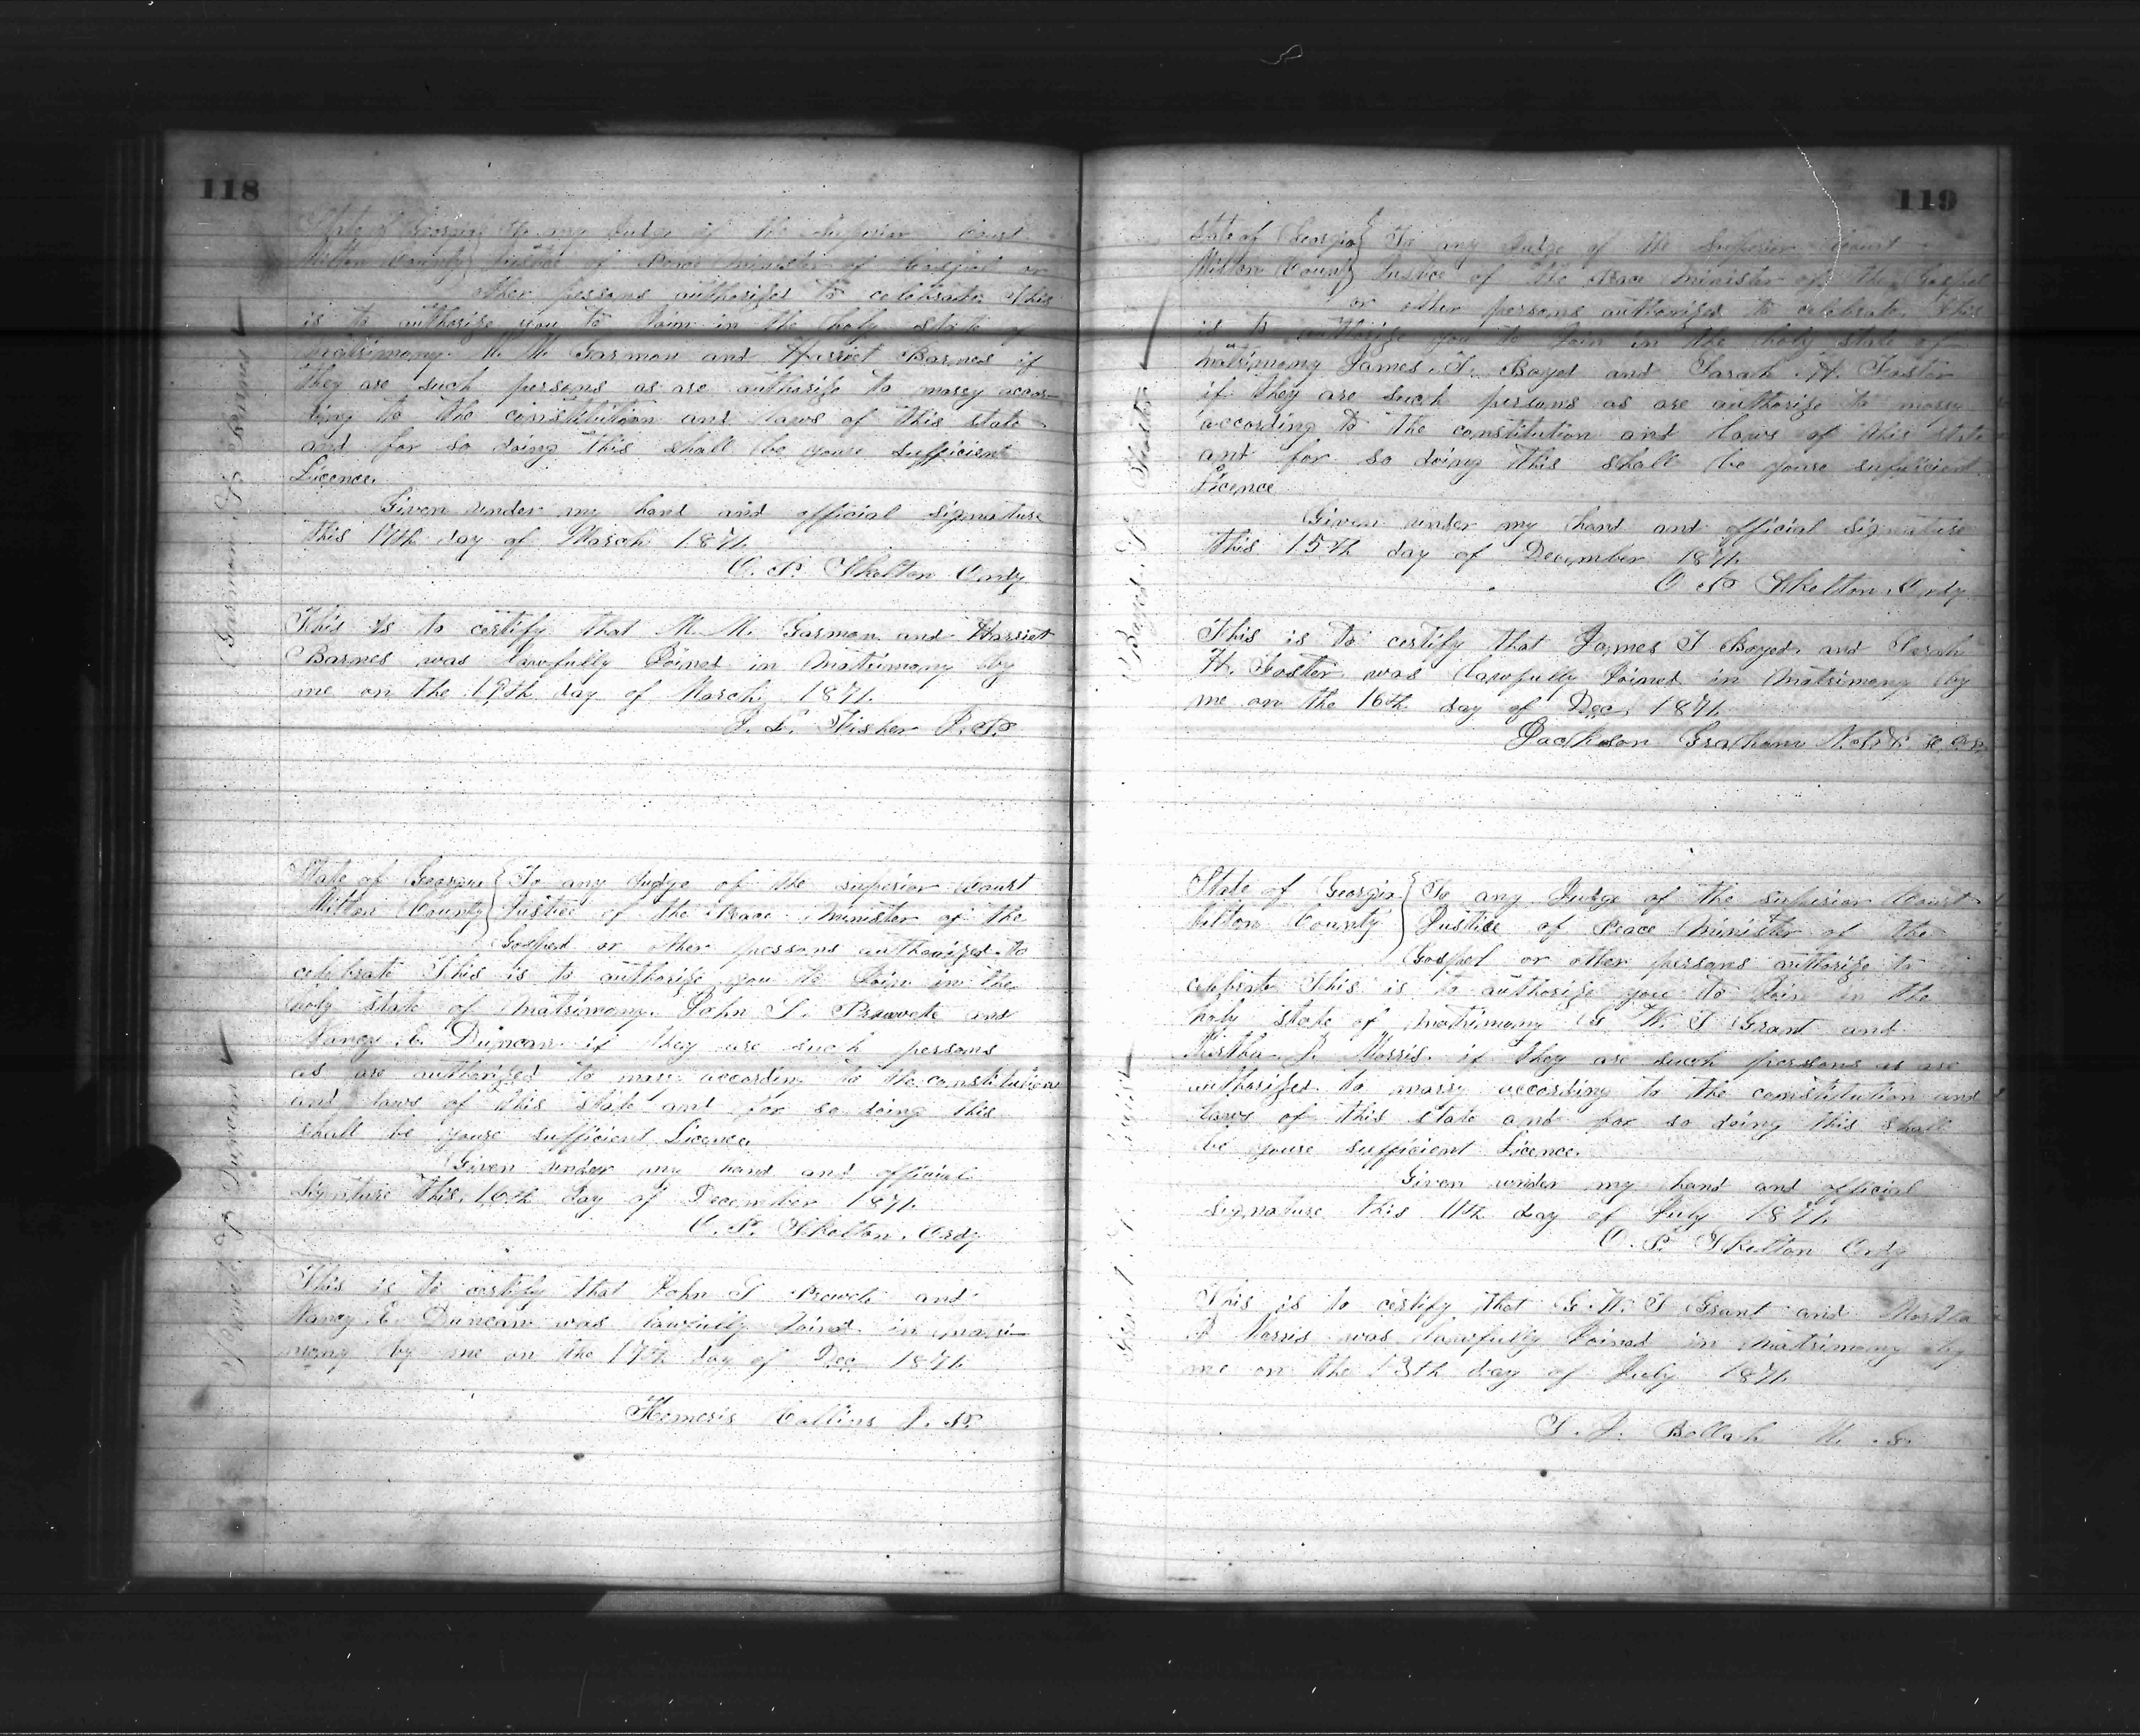 118
State of Georgia } To any Judge of the Superior Court
Milton County } Justice of Peace Minister of Gospel or
other persons authorized to celebrate This
is to authorize you to Join in the holy state of
Matrimony. M. M. Garmon and Harriet Barnes if
they are such persons as are authorize to marry accor-
ding to the constitution and laws of this state
and for so doing this shall be youre sufficient
Licence.
Given under my hand and official signature
this 17th day of March 1871.
O. P. Skelton Ordy
This is to certify that M. M. Garmon and Harriet
Barnes was lawfully Joined in Matrimony by
me on the 19th day of March 1871.
Fisher J. P.
Garmon To Barnes
State of Georgia } To any Judge of the superior Court
Milton County } Justice of the Peace Minister of the
Gospel or other persons authorized to
celebrate This is to authorize you to Join in the
holy state of Matrimony. John T. and
Nancy E. Duncan if they are such persons
as are authorized to marry according to the constitution
and laws of this state and for so doing this
shall be youre sufficient Licence
Given under my hand and official
signture this 16th day of December 1871.
O. P. Skelton. Ordy
This is to certify that John T and
Nancy E. Duncan was lawfully Joind in
by me on the 17th day of Dec 1871.
Collins J. P.
To Duncan
119
State of Georgia } To any Judge of the Superior Court
Milton County } Justice of the Peace Minister of the Gospel
or other persons authorized to celebrate This
is to authorize you to Join in the holy state of
matrimony James T. Boyed and Sarah H. Foster
if they are such persons as are authorize to marry
according to the constitution and laws of this state
and for so doing this shall be youre sufficient
Licence
Given under my hand and official signature
this 15th day of December 1871.
O P Skelton. Ordy
This is to certify that James T Boyed. and Sarah
H. Foster was lawfully Joined in Matrimony by
me on the 16th day of Dec. 1871.
Jackson Graham
Boyed To Foster
State of Georgia } To any Judge of the superior Court
Milton County } Justice of Peace Minister of the
Gospel or other persons authorize to
celebrate This is to authorize you to Join in the
holy state of Matrimony G W. T Grant and
Martha J. Morris. if they are such persons as are
authorized to marry according to the constitution and
Laws of this state and for so doing this shall
be youre sufficient Licence.
Given under my hand and official
signature this 11th day of July 1871.
O. P. Skelton Ordy
This is to certify that G. W. T Grant and Martha
J Morris was lawfully Joined in Matrimony by
me on the 13th day of July 1871.
M. G.